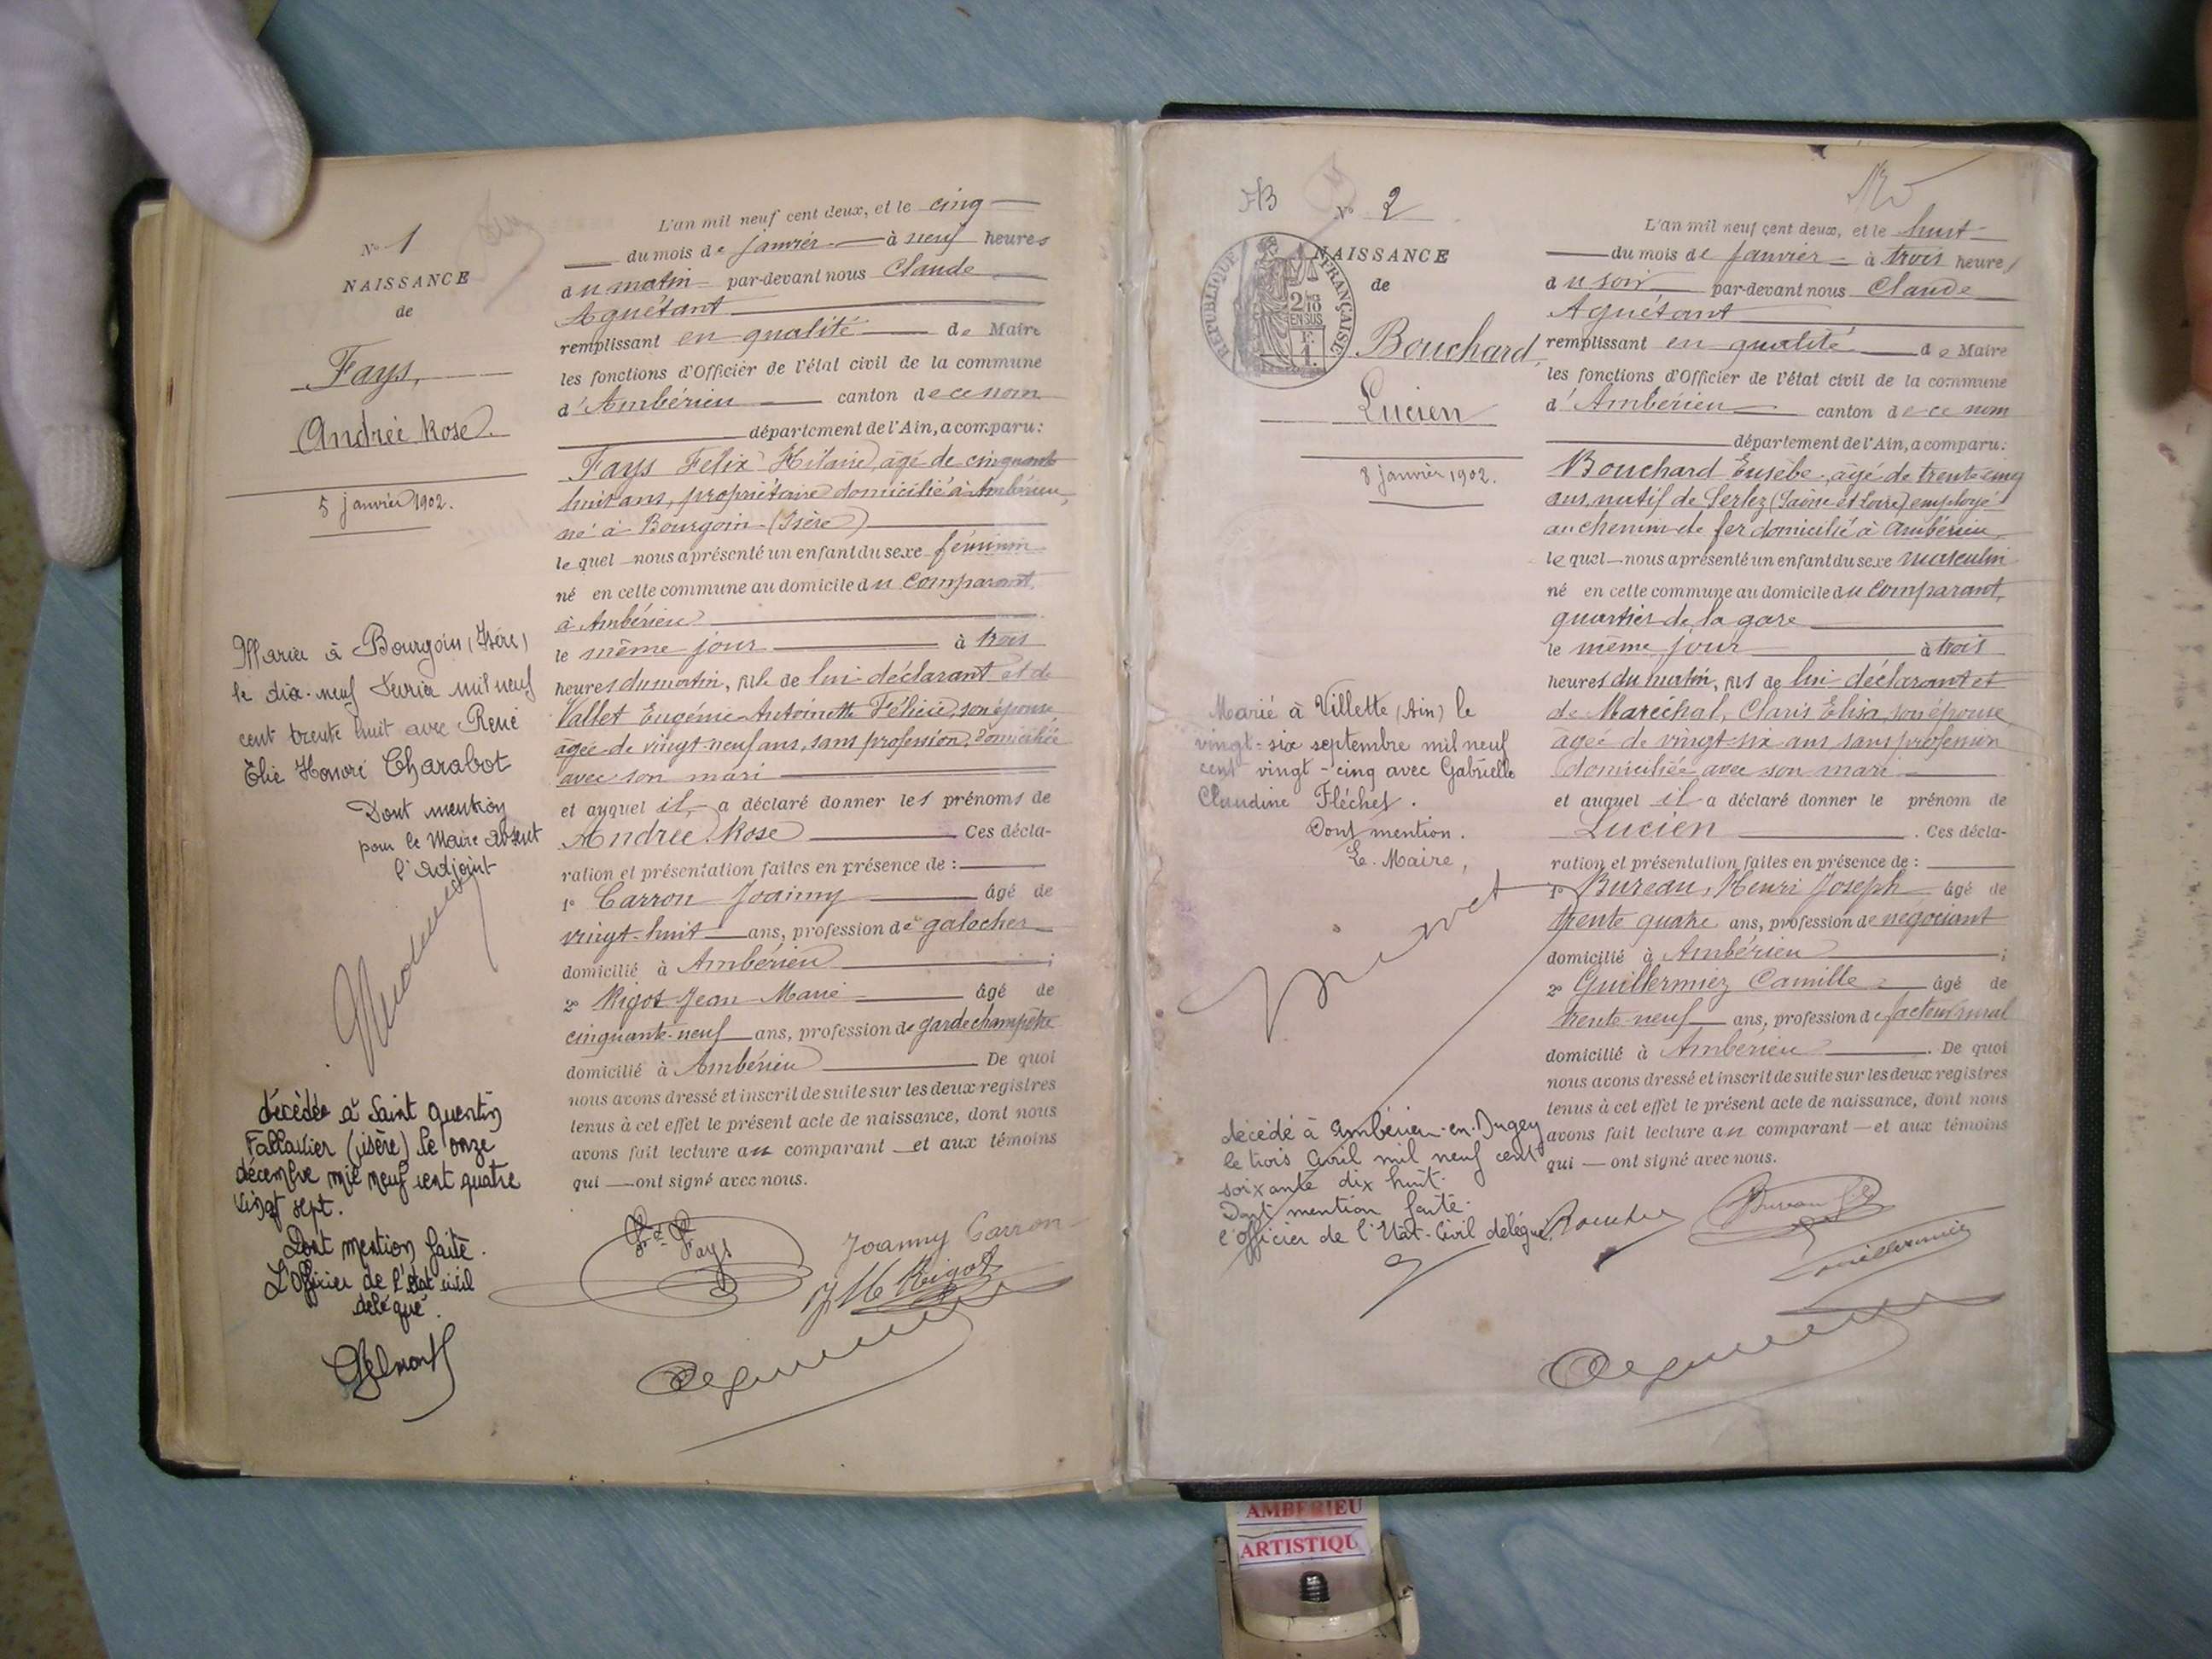 N° 1
NAISSANCE
de
Fays,
Andrée Rose.
5 janvier 1902.
Mariée à Bourgoin (Isère)
le dix-neuf Février mil neuf
cent trente huit avec René
Elie Honoré Charabot
Dont mention
pour le Maire absent
l'adjoint
décédée à Saint Quentin
Fallavier (isère) le onze
décembre mil neuf cent quatre
vingt sept.
Dont mention faite.
L'Officier de l'état civil
délégué.
L'an mil neuf cent deux, et le cinq
du mois de janvier à neuf heures
du matin par-devant nous Claude
Aguétant
remplissant en qualité de Maire
les fonctions d'Officier de l'état civil de la commune
d'Ambérieu canton de ce nom
département de l'Ain, a comparu:
Fays Felix Hilaire, âgé de cinquante
huit ans, propriétaire domicilié à Ambérieu,
né à Bourgoin (Isère)
lequel nous a présenté un enfant du sexe féminin
né en cette commune au domicile du comparant,
à Ambérieu
le même jour à trois
heures du matin, fille de lui déclarant et de
Vallet Eugénie Antoinette Félicie, son épouse
âgée de vingt-neuf ans, sans profession, domiciliée
avec son mari
et auquel il a déclaré donner les prénoms de
Andrée Rose Ces décla-
ration et présentation faites en présence de :
1° Carron Joanny âgé de
vingt-huit ans, profession de galocher
domicilié à Ambérieu ;
2° Rigot Jean Marie âgé de
cinquante-neuf ans, profession de garde champêtre
domicilié à Ambérieu De quoi
nous avons dressé et inscrit de suite sur les deux registres
tenus à cet effet le présent acte de naissance, dont nous
avons fait lecture au comparant et aux témoins
qui ont signé avec nous.
Fays
Joanny Carron
JM Rigot
N° 2
NAISSANCE
de
RÉPUBLIQUE FRANÇAISE
2/10
EN SUS
Bouchard,
Lucien
8 janvier 1902.
Marié à Villette (Ain) le
vingt-six septembre mil neuf
cent vingt-cinq avec Gabrielle
Claudine Fléchet.
Dont mention.
Le Maire,
décédé à Ambérieu-en-Bugey
le trois Avril mil neuf cent
soixante dix huit.
Dont mention faite.
l'officier de l'Etat-Civil délégué
L'an mil neuf cent deux, et le huit
du mois de janvier à trois heures
du soir par-devant nous Claude
Aguétant
remplissant en qualité de Maire
les fonctions d'Officier de l'état civil de la commune
d'Ambérieu canton de ce nom
département de l'Ain, a comparu:
Bouchard Eusèbe, âgé de trente cinq
ans, natif de (Saône et Loire) employé
au chemin de fer domicilié à Ambérieu,
lequel nous a présenté un enfant du sexe masculin
né en cette commune au domicile du comparant,
quartier de la gare
le même jour à trois
heures du matin, fils de lui déclarant et
de Maréchal, Claris Elisa, son épouse
âgée de vingt-six ans sans profession
domiciliée avec son mari
et auquel il a déclaré donner le prénom de
Lucien . Ces décla-
ration et présentation faites en présence de :
1° Bureau, Henri Joseph âgé de
trente quatre ans, profession de négociant
domicilié à Ambérieu ;
2° Guillermiez Camille âgé de
trente-neuf ans, profession de facteur rural
domicilié à Ambérieu . De quoi
nous avons dressé et inscrit de suite sur les deux registres
tenus à cet effet le présent acte de naissance, dont nous
avons fait lecture au comparant et aux témoins
qui ont signé avec nous.
AMBERIEU
ARTISTIQU